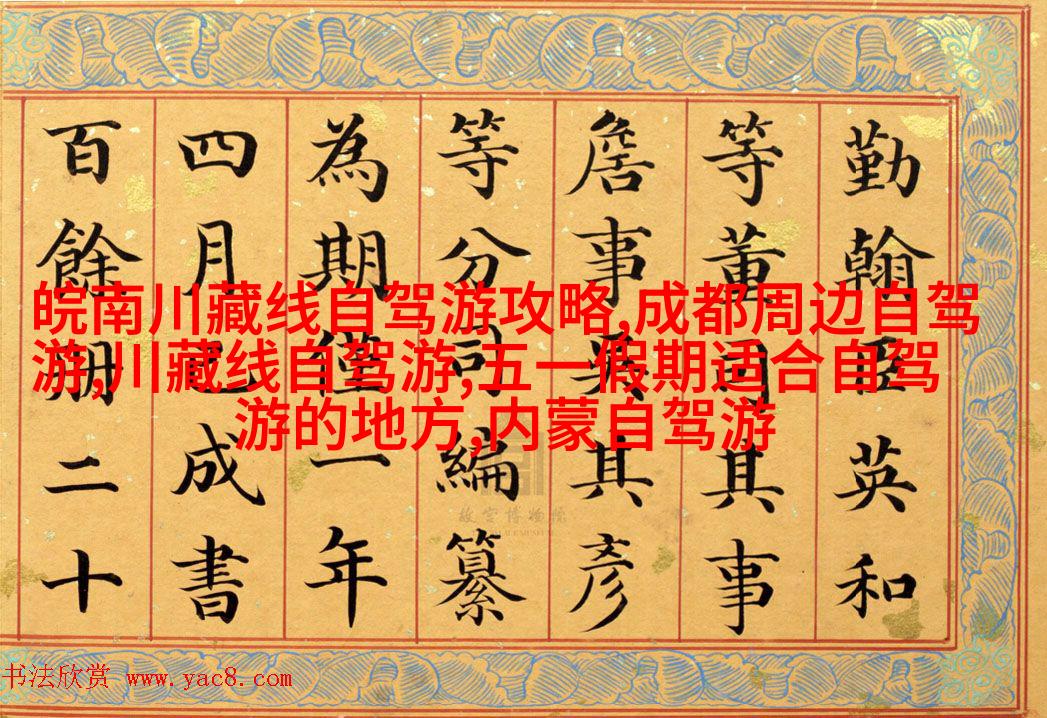 勤翰臣英和
等董司其事
詹事吳其彥
等分司編纂
為期僅一年
四月已成書
百餘冊二十
皖南川藏线自驾游攻略,成都周边自驾
游,川藏线自驾游,五一假期适合自驾
游的地方,内蒙自驾游
故宫博物院
书法欣赏 www.yac8.com